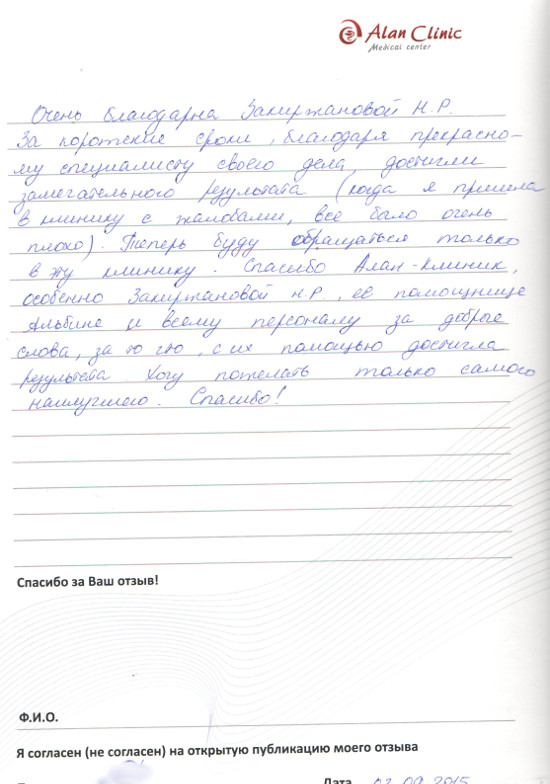 Alan Clinic
Medical center
Очень благодарна Закиржановой Н.Р.
За короткие сроки, благодаря прекрасно-
му специалисту своего дела, достигли
замечательного результата (когда я пришла
в клинику с жалобами, все было очень
плохо). Теперь буду обращаться только
в эту клинику. Спасибо Алан-Клиник,
особенно Закиржановой Н.Р., её помощнице
Альбине и всему персоналу за добрые
слова, за то что, с их помощью достигла
результата. Хочу пожелать только самого
наилучшего. Спасибо!
Спасибо за Ваш отзыв!
Ф.И.О.
Я согласен (не согласен) на открытую публикацию моего отзыва
Дата 03.09.2015